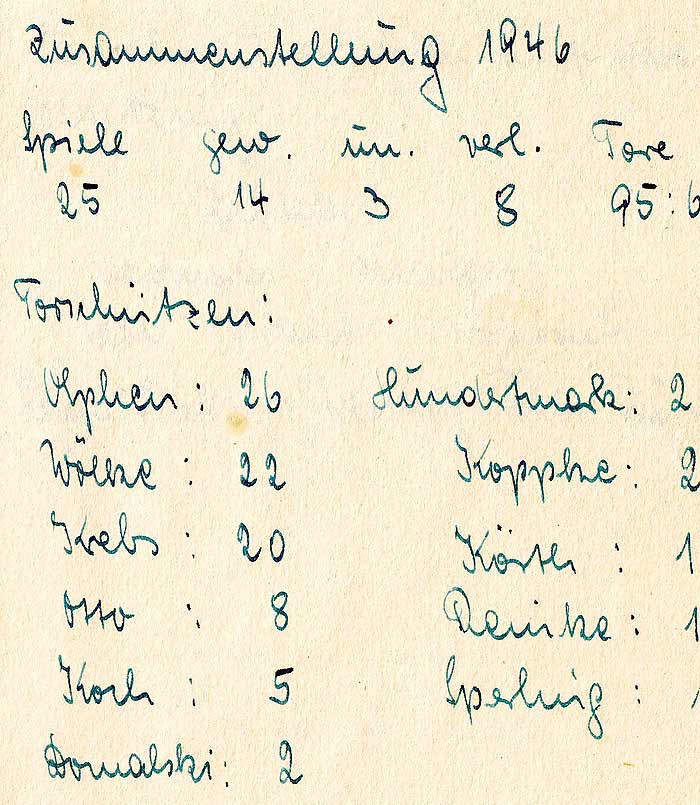 Zusammenstellung 1946
Spiele gew. un. verl. Tore
25 14 3 8 95:6
Torschützen:
Olphen: 26 Hundertmark: 2
Wölke: 22 Koppke: 2
Krebs: 20 1
Otto: 8 1
Koch: 5 Sperling:
Domalski: 2